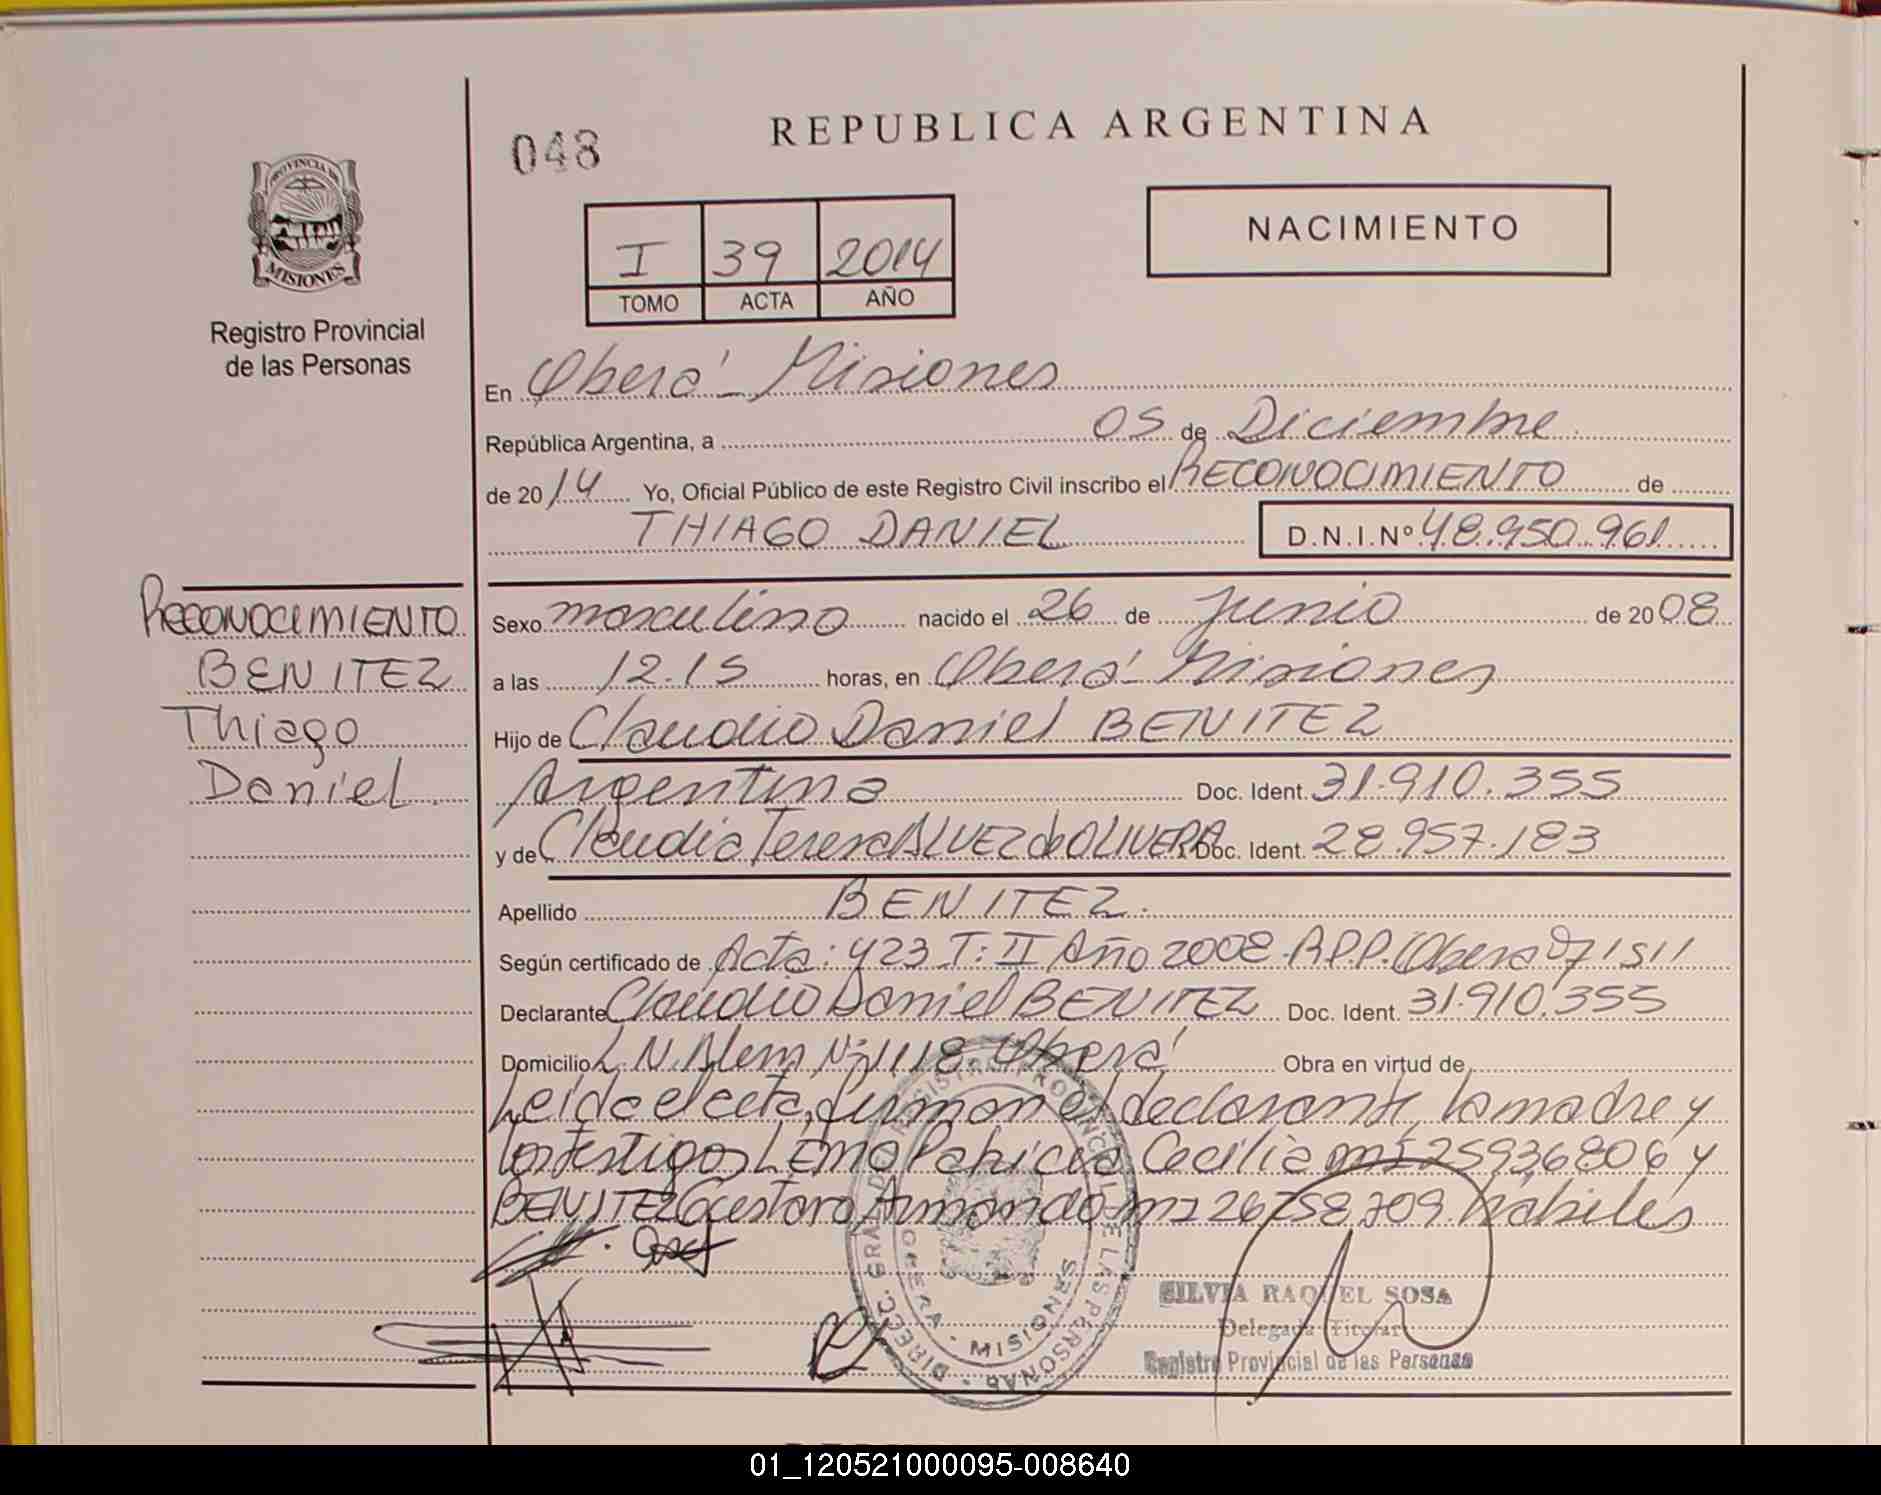 048
REPUBLICA ARGENTINA
NACIMIENTO
PROVINCIA DE
MISIONES
Registro Provincial
de las Personas
I 39 2014
TOMO ACTA AÑO
En Oberá - Misiones
República Argentina, a 05 de Diciembre
de 2014 Yo, Oficial Público de este Registro Civil inscribo el RECONOCIMIENTO de
THIAGO DANIEL D.N.I.Nº 48.950.961
RECONOCIMIENTO
BENITEZ
Thiago
Daniel
Sexo masculino nacido el 26 de Junio de 2008
a las 12.15 horas, en Oberá - Misiones
Hijo de Claudio Daniel BENITEZ
Argentina Doc. Ident. 31.910.355
y de Claudia Teresa ALVEZ de OLIVERA Doc. Ident. 28.957.183
Apellido BENITEZ.
Según certificado de Acta: 423 T: II Año 2008. R.P.P. Oberá
Declarante Claudio Daniel BENITEZ Doc. Ident. 31.910.355
Domicilio L. N. Alem Nº 1118 Oberá Obra en virtud de
Leída el acta, firman el declarante, la madre y
los testigos LEMO Patricia Cecilia MI 25936806 y
BENITEZ Gustavo Armando MI 26758.709. hábiles
DIRECC. GRAL. DEL REGISTRO PROVINCIAL DE LAS PERSONAS
OBERA - MISIONES
SILVIA RAQUEL SOSA
Delegada Titular
Registro Provincial de las Personas
01_120521000095-008640